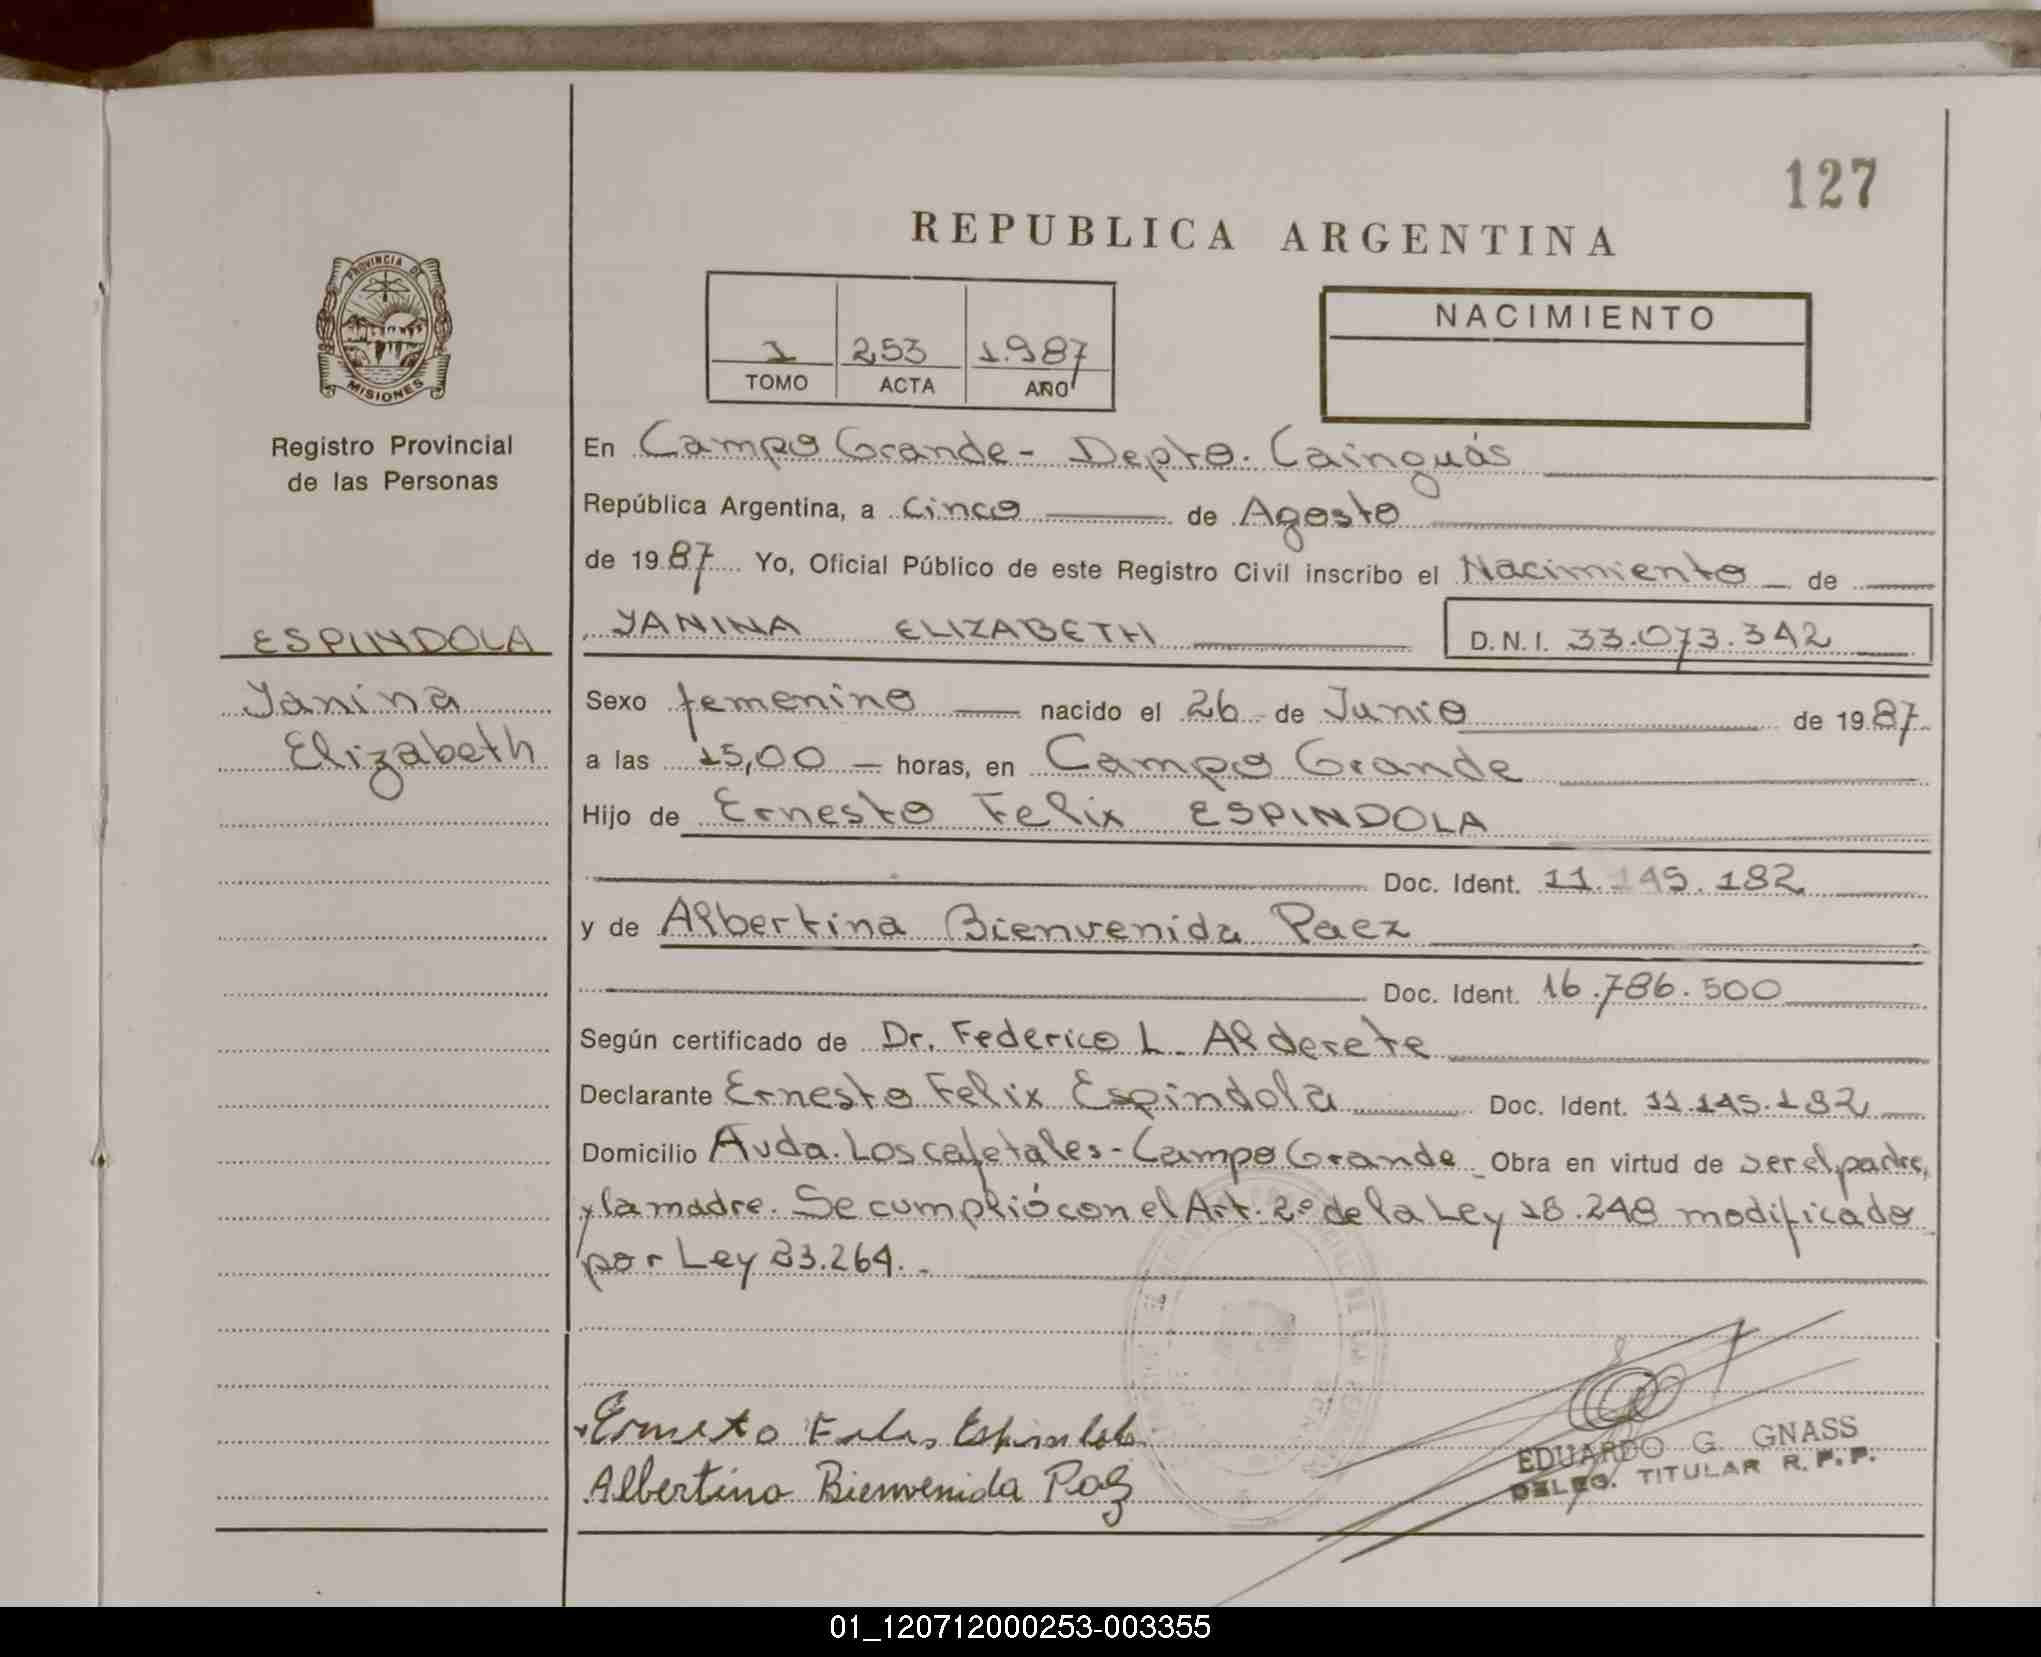 127
REPUBLICA ARGENTINA
PROVINCIA DE
MISIONES
Registro Provincial
de las Personas
1 253 1.987
TOMO ACTA AÑO
NACIMIENTO
En Campo Grande - Depto. Cainguás
República Argentina, a cinco de Agosto
de 1987 Yo, Oficial Público de este Registro Civil inscribo el Nacimiento de
ESPINDOLA
Yanina
Elizabeth
YANINA ELIZABETH D.N.I. 33.073.342
Sexo femenino nacido el 26 de Junio de 1987
a las 15,00 horas, en Campo Grande
Hijo de Ernesto Felix ESPINDOLA
Doc. Ident. 11.145.182
y de Albertina Bienvenida Paez
Doc. Ident. 16.786.500
Según certificado de Dr. Federico L. Alderete
Declarante Ernesto Felix Espindola Doc. Ident. 11.145.182
Domicilio Avda. Los cafetales - Campo Grande Obra en virtud de ser el padre,
y la madre. Se cumplió con el Art. 2º de la Ley 18.248 modificado
por Ley 23.264.-
Ernesto Felix Espindola
Albertina Bienvenida Paez
EDUARDO G. GNASS
DELEG. TITULAR R.P.P.
01_120712000253-003355